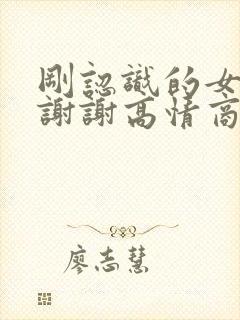 剛認識的女
謝謝高情商
廖志慧